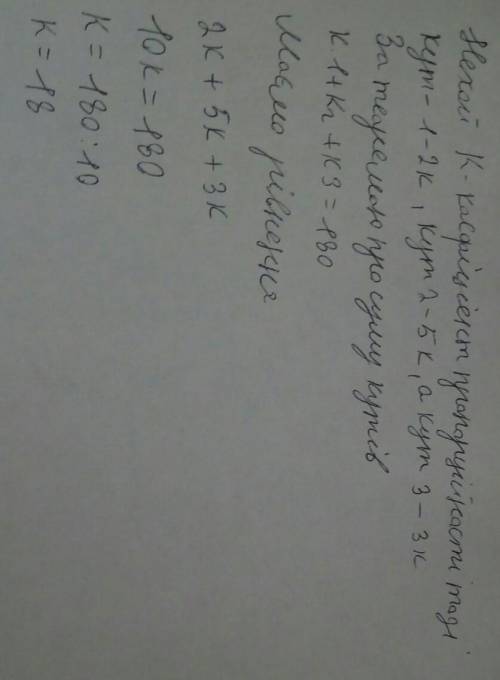 Нехай К - коефіцієнт пропорційності тоді
кут - 1 - 2к, кут 2 - 5к, а кут 3 - 3к
За теремою про суму кутів
к 1 + к2 + к3 = 180
Маємо рівнення
2к + 5к + 3к
10к = 180
к = 180 : 10
к = 18